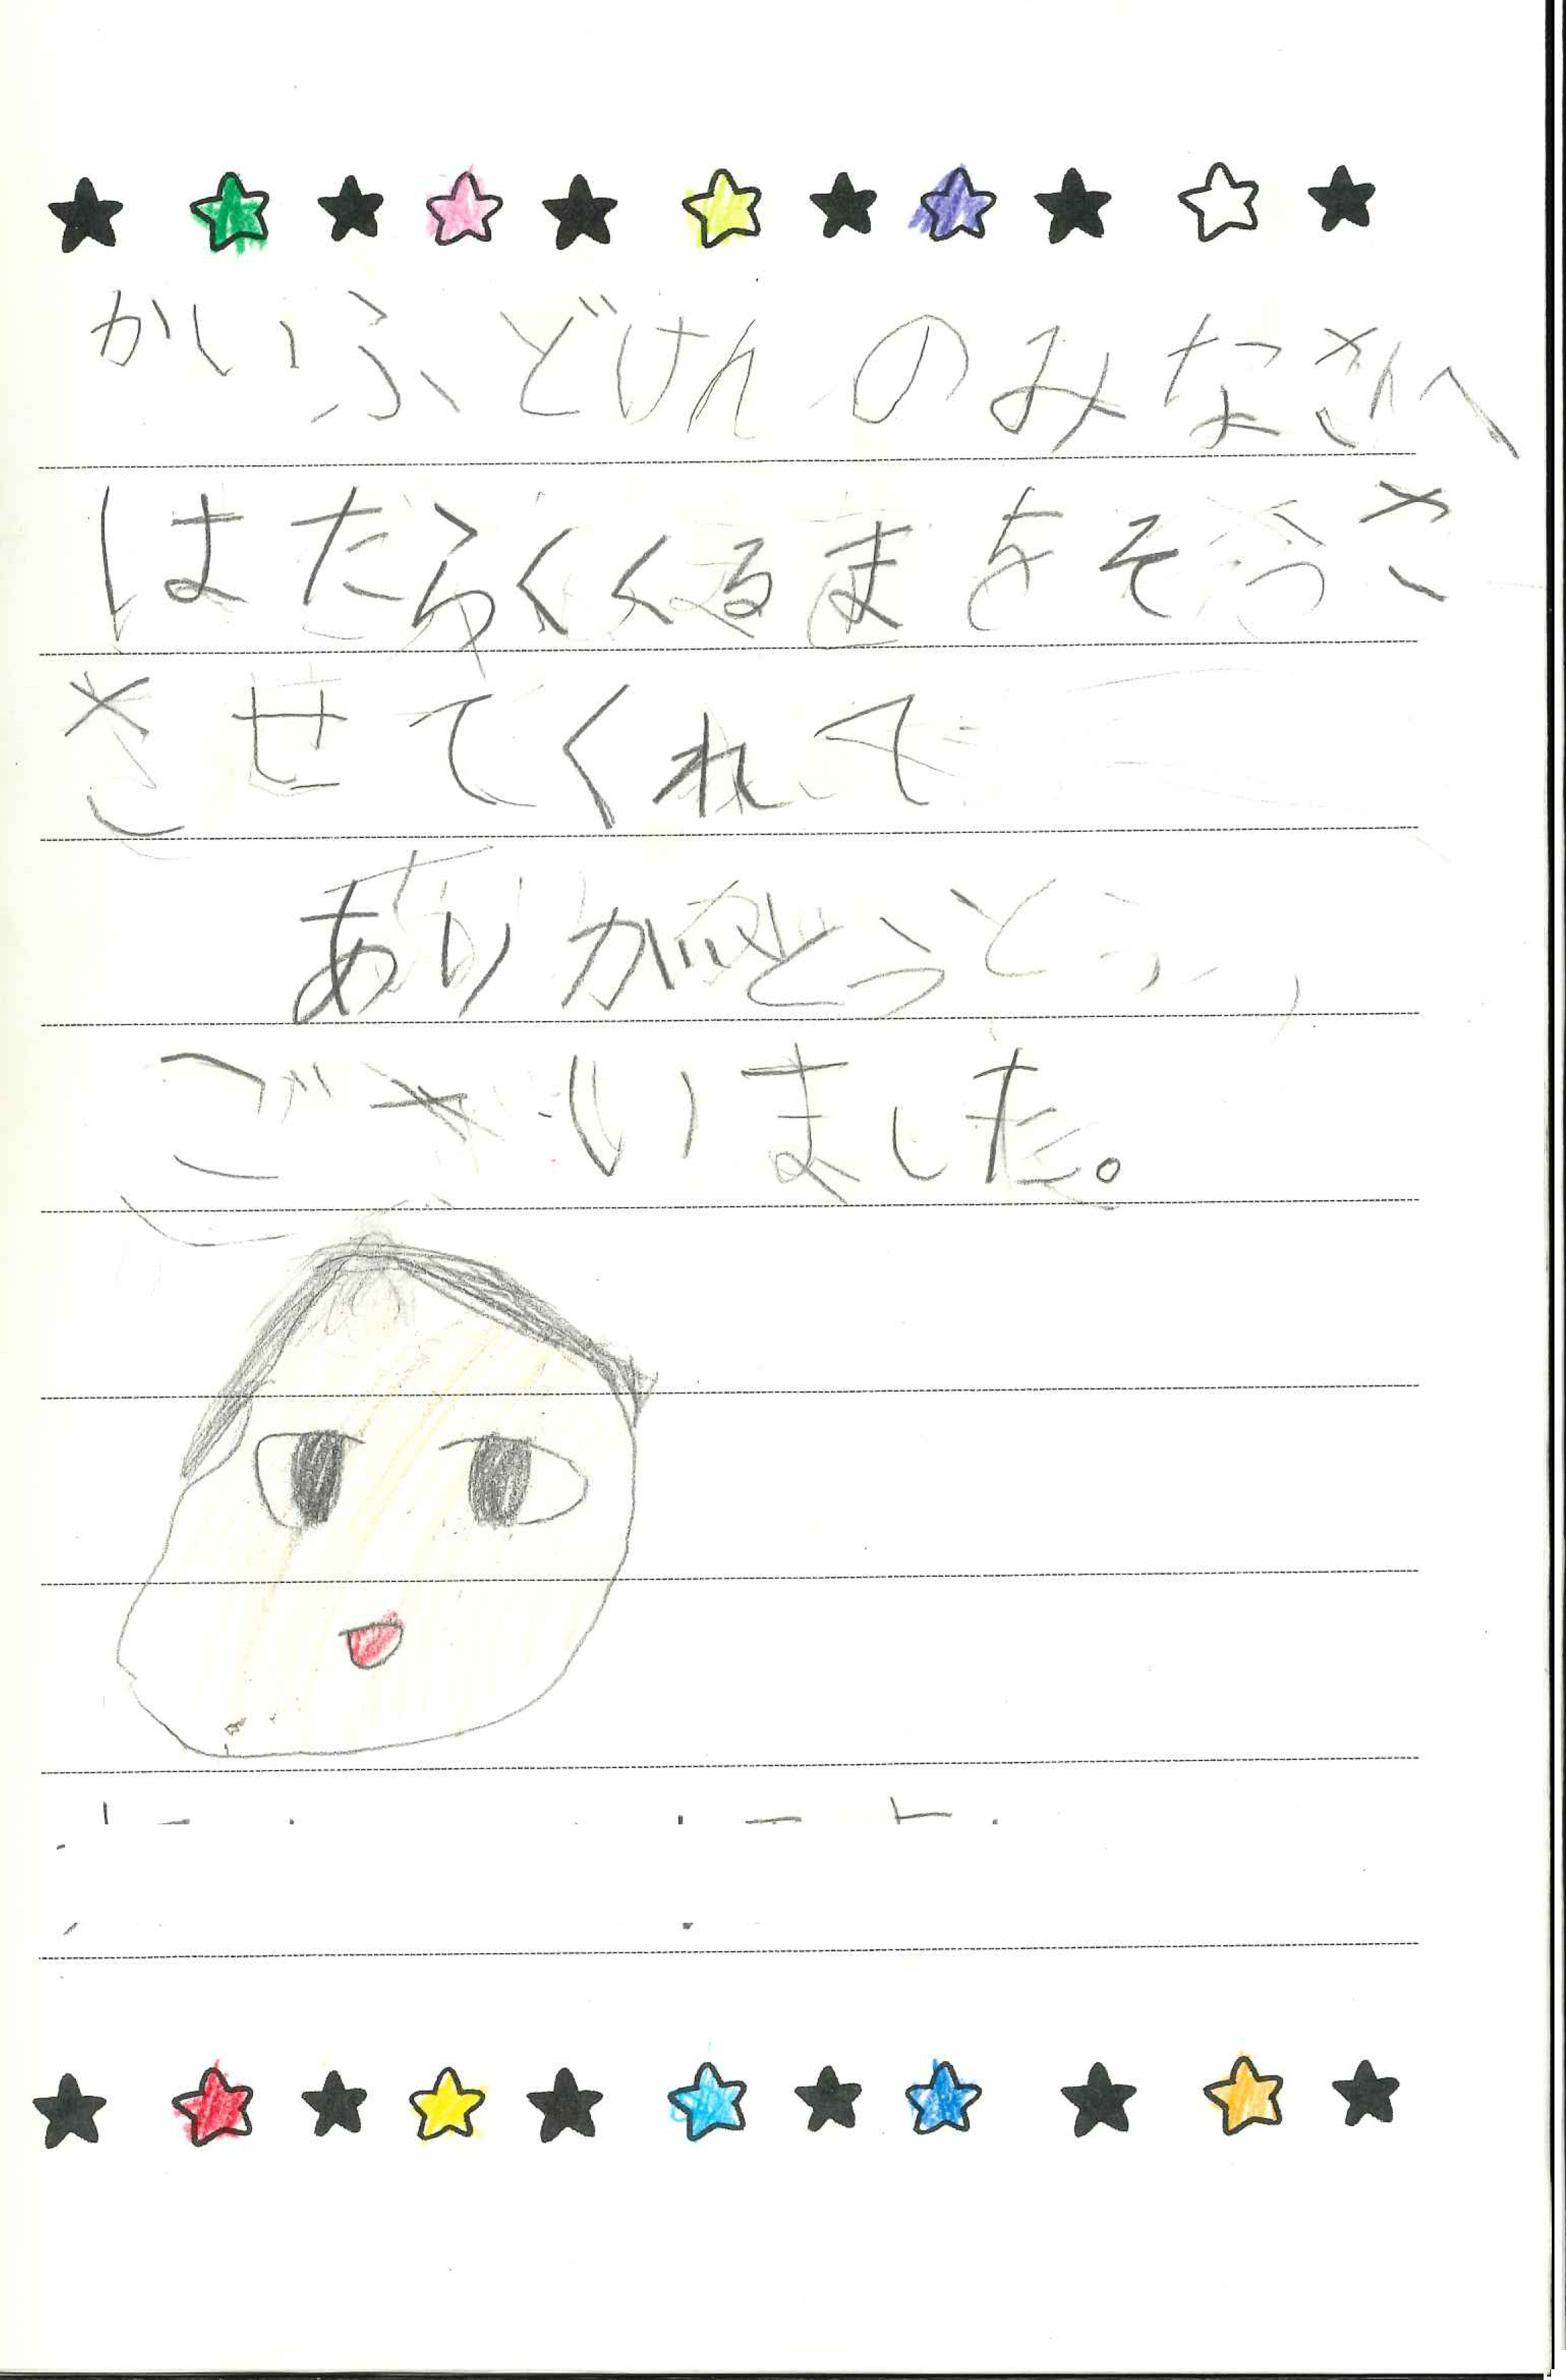 かいふどけんのみなさんへ
はたらくくるまをそうさ
させてくれて
ありがとう
ございました。